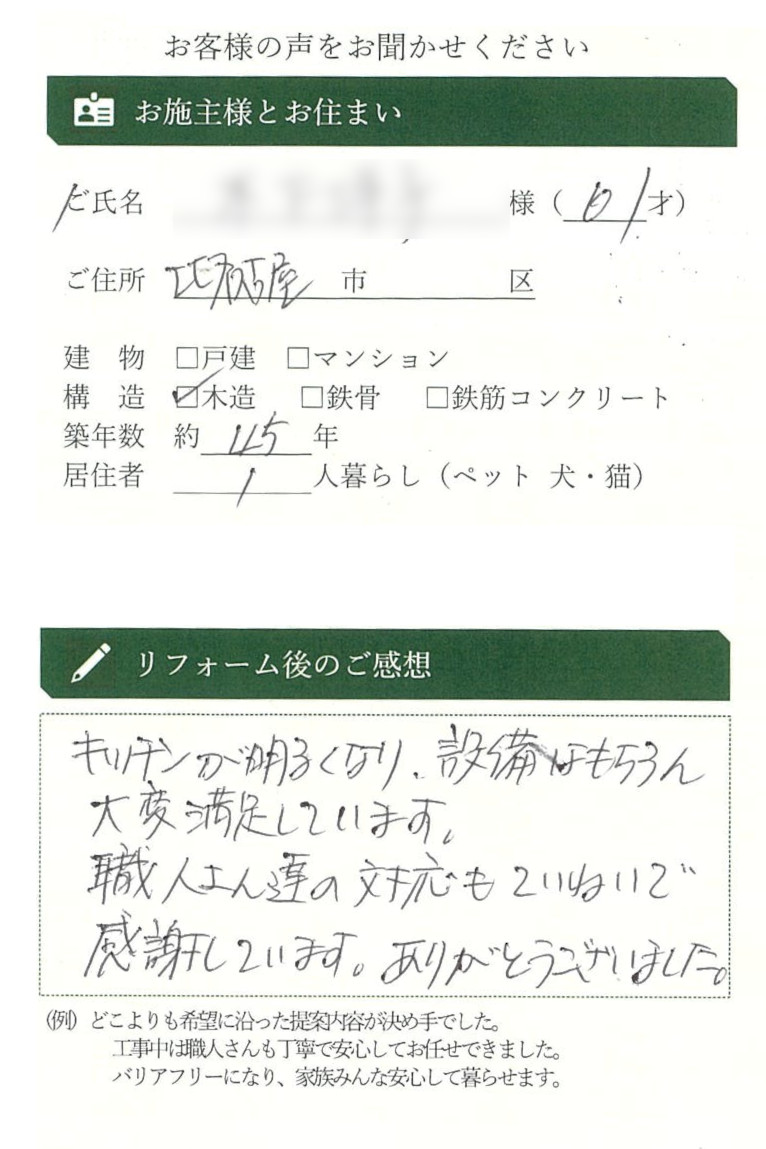 お客様の声をお聞かせください
お施主様とお住まい
ご氏名 様（61才）
ご住所 北名古屋 市 区
建 物 □戸建 □マンション
構 造 ☑木造 □鉄骨 □鉄筋コンクリート
築年数 約 45 年
居住者 1 人暮らし（ペット 犬・猫）
リフォーム後のご感想
キッチンが明るくなり、設備はもちろん
大変満足しています。
職人さん達の対応もていねいで
感謝しています。ありがとうございました。
（例）どこよりも希望に沿った提案内容が決め手でした。
工事中は職人さんも丁寧で安心してお任せできました。
バリアフリーになり、家族みんな安心して暮らせます。